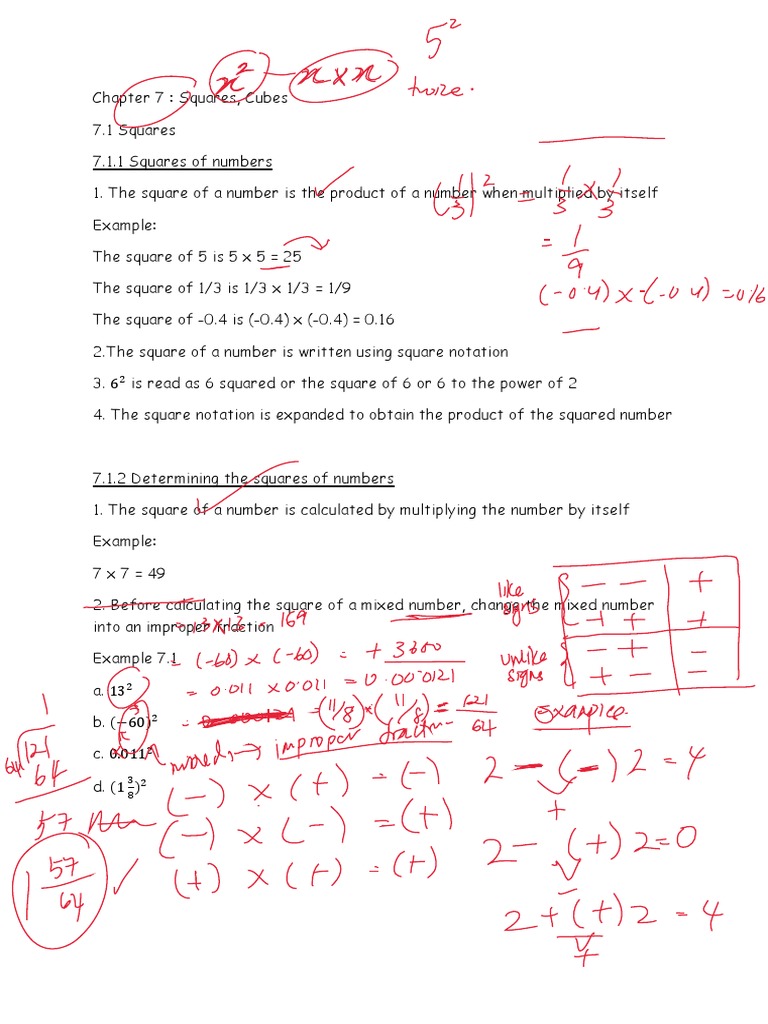 x² — x × x
5²
twice.
Chapter 7 : Squares, Cubes
7.1 Squares
7.1.1 Squares of numbers
1. The square of a number is the product of a number when multiplied by itself
(1/3)² = 1/3 × 1/3
= 1/9
Example:
The square of 5 is 5 x 5 = 25
The square of 1/3 is 1/3 x 1/3 = 1/9
(-0.4) x -(-0.4) = 0.16
The square of -0.4 is (-0.4) x (-0.4) = 0.16
2.The square of a number is written using square notation
3. 6² is read as 6 squared or the square of 6 or 6 to the power of 2
4. The square notation is expanded to obtain the product of the squared number
7.1.2 Determining the squares of numbers
1. The square of a number is calculated by multiplying the number by itself
Example:
7 x 7 = 49
like signs
− − +
+ + +
unlike signs
− + −
+ − −
2. Before calculating the square of a mixed number, change the mixed number
into an improper fraction
= 13 x 13 = 169
Example 7.1
= (-60) x (-60) = + 3600
a. 13²
= 0.011 x 0.011 = 0.000121
b. (−60)²
= (11/8) x (11/8) = 121/64
c. 0.011²
mixed → improper fraction
d. (1 3/8)²
(−) x (+) = (−)
(−) x (−) = (+)
(+) x (+) = (+)
1
64 121
64
57
1 57/64
Example.
2 − (−) 2 = 4
+
2 − (+) 2 = 0
−
2 + (+) 2 = 4
+